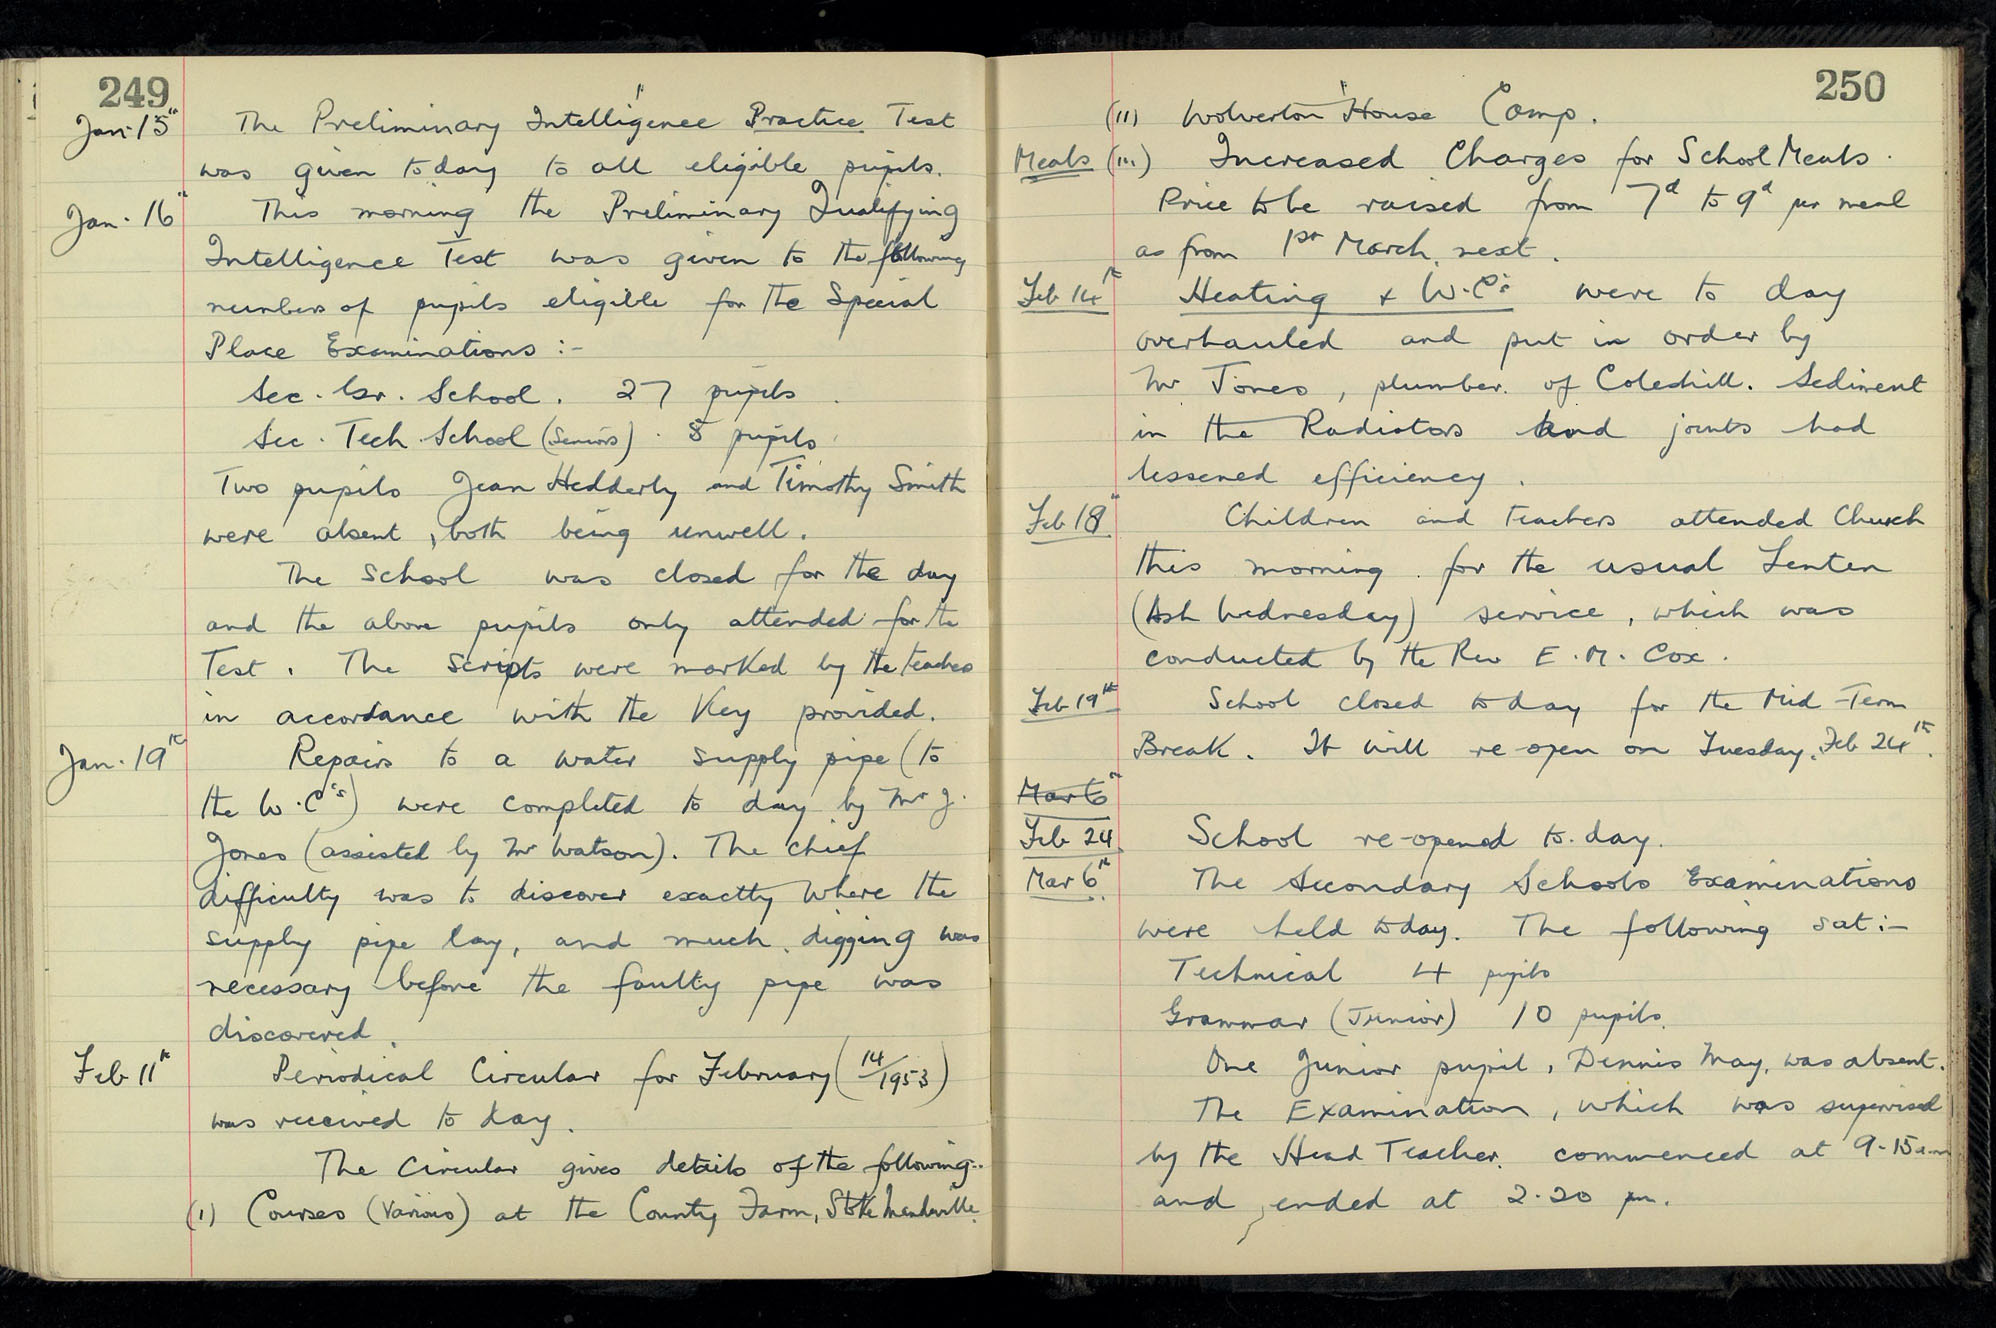 249
Jan. 15th The Preliminary Intelligence Practice Test
was given today to all eligible pupils.
Jan. 16th This morning the Preliminary Qualifying
Intelligence Test was given to the following
numbers of pupils eligible for the Special
Place Examinations :-
Sec. Gr. School. 27 pupils
Sec. Tech. School (Seniors). 8 pupils
Two pupils Jean Hedderly and Timothy Smith
were absent, both being unwell.
The School was closed for the day
and the above pupils only attended for the
Test. The scripts were marked by the teachers
in accordance with the Key provided.
Jan. 19th Repairs to a water supply pipe (to
the W.C's) were completed to day by Mr J.
Jones (assisted by Mr Watson). The chief
difficulty was to discover exactly where the
supply pipe lay, and much digging was
necessary before the faulty pipe was
discovered.
Feb 11th Periodical Circular for February (14/1953)
was received to day.
The Circular gives details of the following..
(1) Courses (Various) at the County Farm, Stoke Mandeville.
250
(11) Wolverton House Camp.
Meals (111) Increased Charges for School Meals.
Price to be raised from 7d to 9d per meal
as from 1st March. next.
Feb 14th Heating & W.C's were to day
overhauled and put in order by
Mr Jones, plumber. of Coleshill. Sediment
in the Radiators and joints had
lessened efficiency.
Feb 18th Children and teachers attended Church
this morning for the usual Lenten
(Ash Wednesday) service, which was
conducted by the Rev E. M. Cox.
Feb 19th School closed today for the Mid-Term
Break. It will re-open on Tuesday. Feb 24th.
Mar 6th
Feb 24 School re-opened to.day.
Mar 6th The Secondary Schools Examinations
were held today. The following sat:-
Technical 4 pupils
Grammar (Junior) 10 pupils.
One Junior pupil, Dennis May, was absent.
The Examination, which was supervised
by the Head Teacher. commenced at 9-15 a.m
and ended at 2.20 pm.